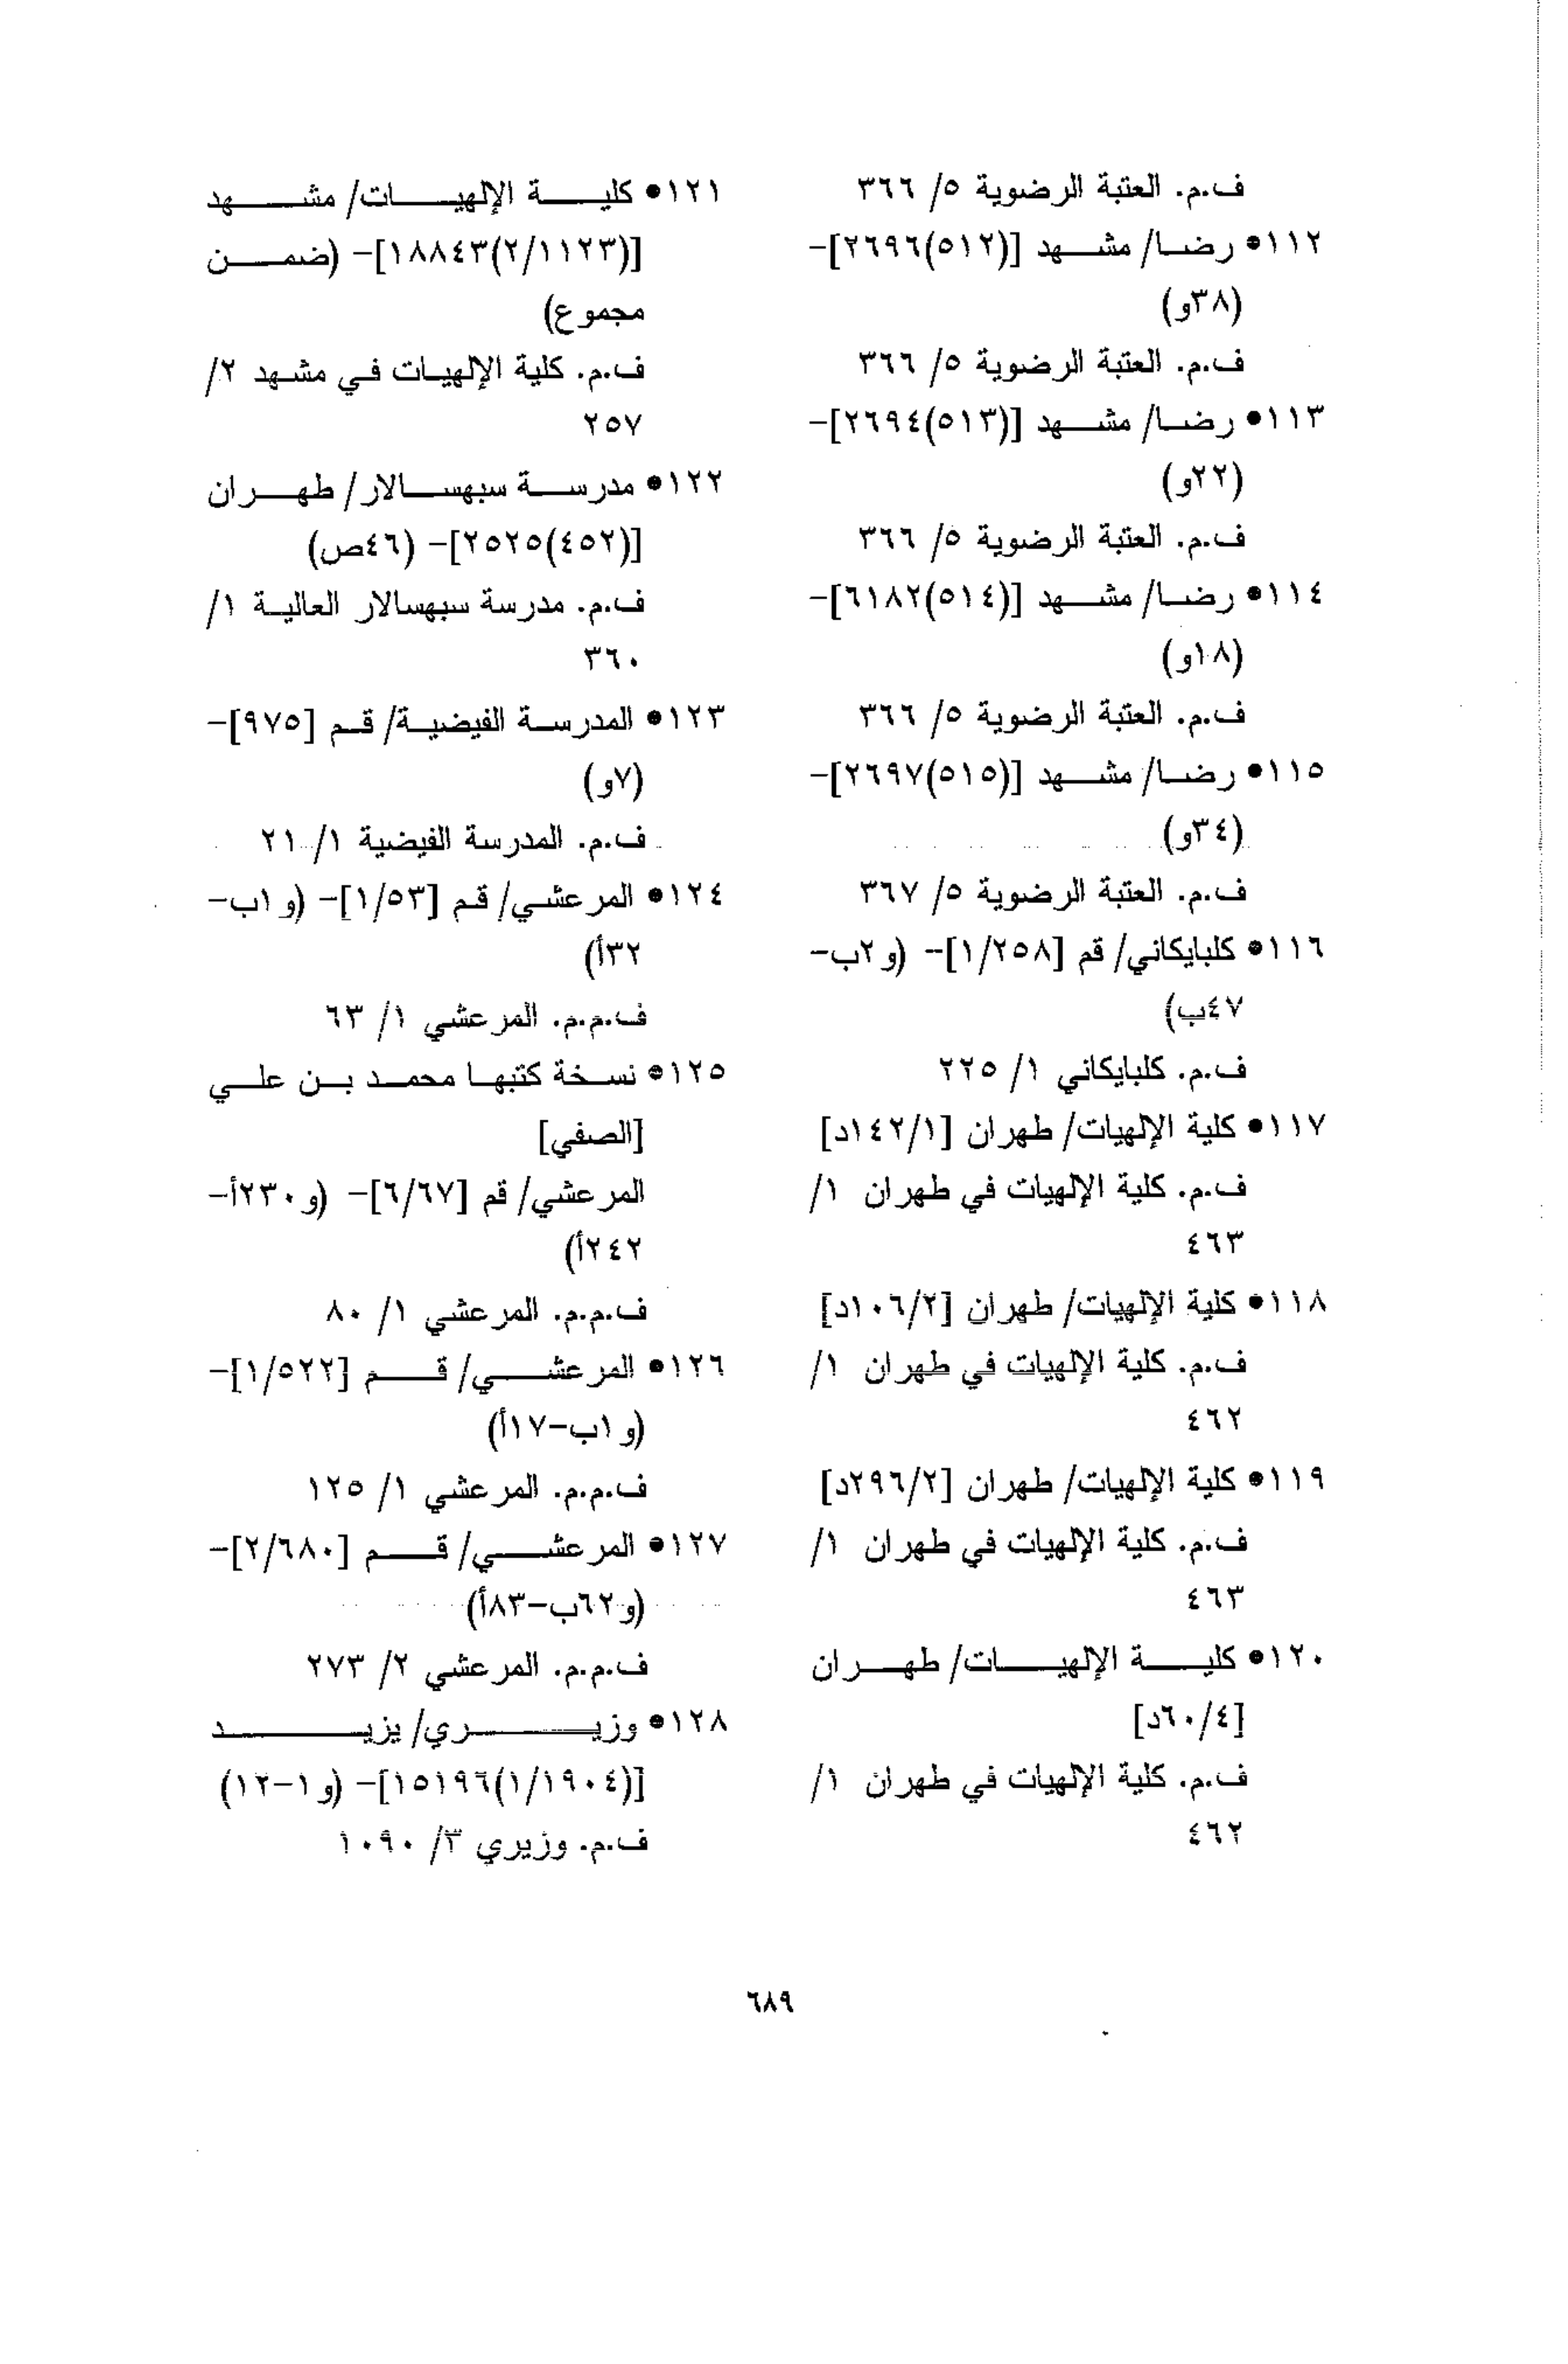 ف.م. العتبة الرضوية ٥/ ٣٦٦
١١٢• رضا/ مشهد [(٥١٢)٢٦٩٦]-
(٣٨و)
ف.م. العتبة الرضوية ٥/ ٣٦٦
١١٣• رضا/ مشهد [(٥١٣)٢٦٩٤]-
(٢٢و)
ف.م. العتبة الرضوية ٥/ ٣٦٦
١١٤• رضا/ مشهد [(٥١٤)٦١٨٢]-
(١٨و)
ف.م. العتبة الرضوية ٥/ ٣٦٦
١١٥• رضا/ مشهد [(٥١٥)٢٦٩٧]-
(٣٤و)
ف.م. العتبة الرضوية ٥/ ٣٦٧
١١٦• كلبايكاني/ قم [١/٢٥٨]- (و٢ب-
٤٧ب)
ف.م. كلبايكاني ١/ ٢٢٥
١١٧• كلية الإلهيات/ طهران [١٤٢/١د]
ف.م. كلية الإلهيات في طهران ١/
٤٦٣
١١٨• كلية الإلهيات/ طهران [١٠٦/٢د]
ف.م. كلية الإلهيات في طهران ١/
٤٦٢
١١٩• كلية الإلهيات/ طهران [٢٩٦/٢د]
ف.م. كلية الإلهيات في طهران ١/
٤٦٣
١٢٠• كلية الإلهيات/ طهران
[٦٠/٤د]
ف.م. كلية الإلهيات في طهران ١/
٤٦٢
١٢١• كلية الإلهيات/ مشهد
[(٢/١١٢٣)١٨٨٤٣]- (ضمن
مجموع)
ف.م. كلية الإلهيات في مشهد ٢/
٢٥٧
١٢٢• مدرسة سبهسالار/ طهران
[(٤٥٢)٢٥٢٥]- (٤٦ص)
ف.م. مدرسة سبهسالار العالية ١/
٣٦٠
١٢٣• المدرسة الفيضية/ قم [٩٧٥]-
(٧و)
ف.م. المدرسة الفيضية ١/ ٢١
١٢٤• المرعشي/ قم [١/٥٣]- (و١ب-
٣٢أ)
ف.م.م. المرعشي ١/ ٦٣
١٢٥• نسخة كتبها محمد بن علي
[الصفي]
المرعشي/ قم [٦/٦٧]- (و٢٣٠أ-
٢٤٢أ)
ف.م.م. المرعشي ١/ ٨٠
١٢٦• المرعشي/ قم [١/٥٢٢]-
(و١ب-١٧أ)
ف.م.م. المرعشي ١/ ١٢٥
١٢٧• المرعشي/ قم [٢/٦٨٠]-
(و٦٢ب-٨٣أ)
ف.م.م. المرعشي ٢/ ٢٧٣
١٢٨• وزيري/ يزيد
[(١/١٩٠٤)١٥١٩٦]- (و١-١٢)
ف.م. وزيري ٣/ ١٠٩٠
٦٨٩